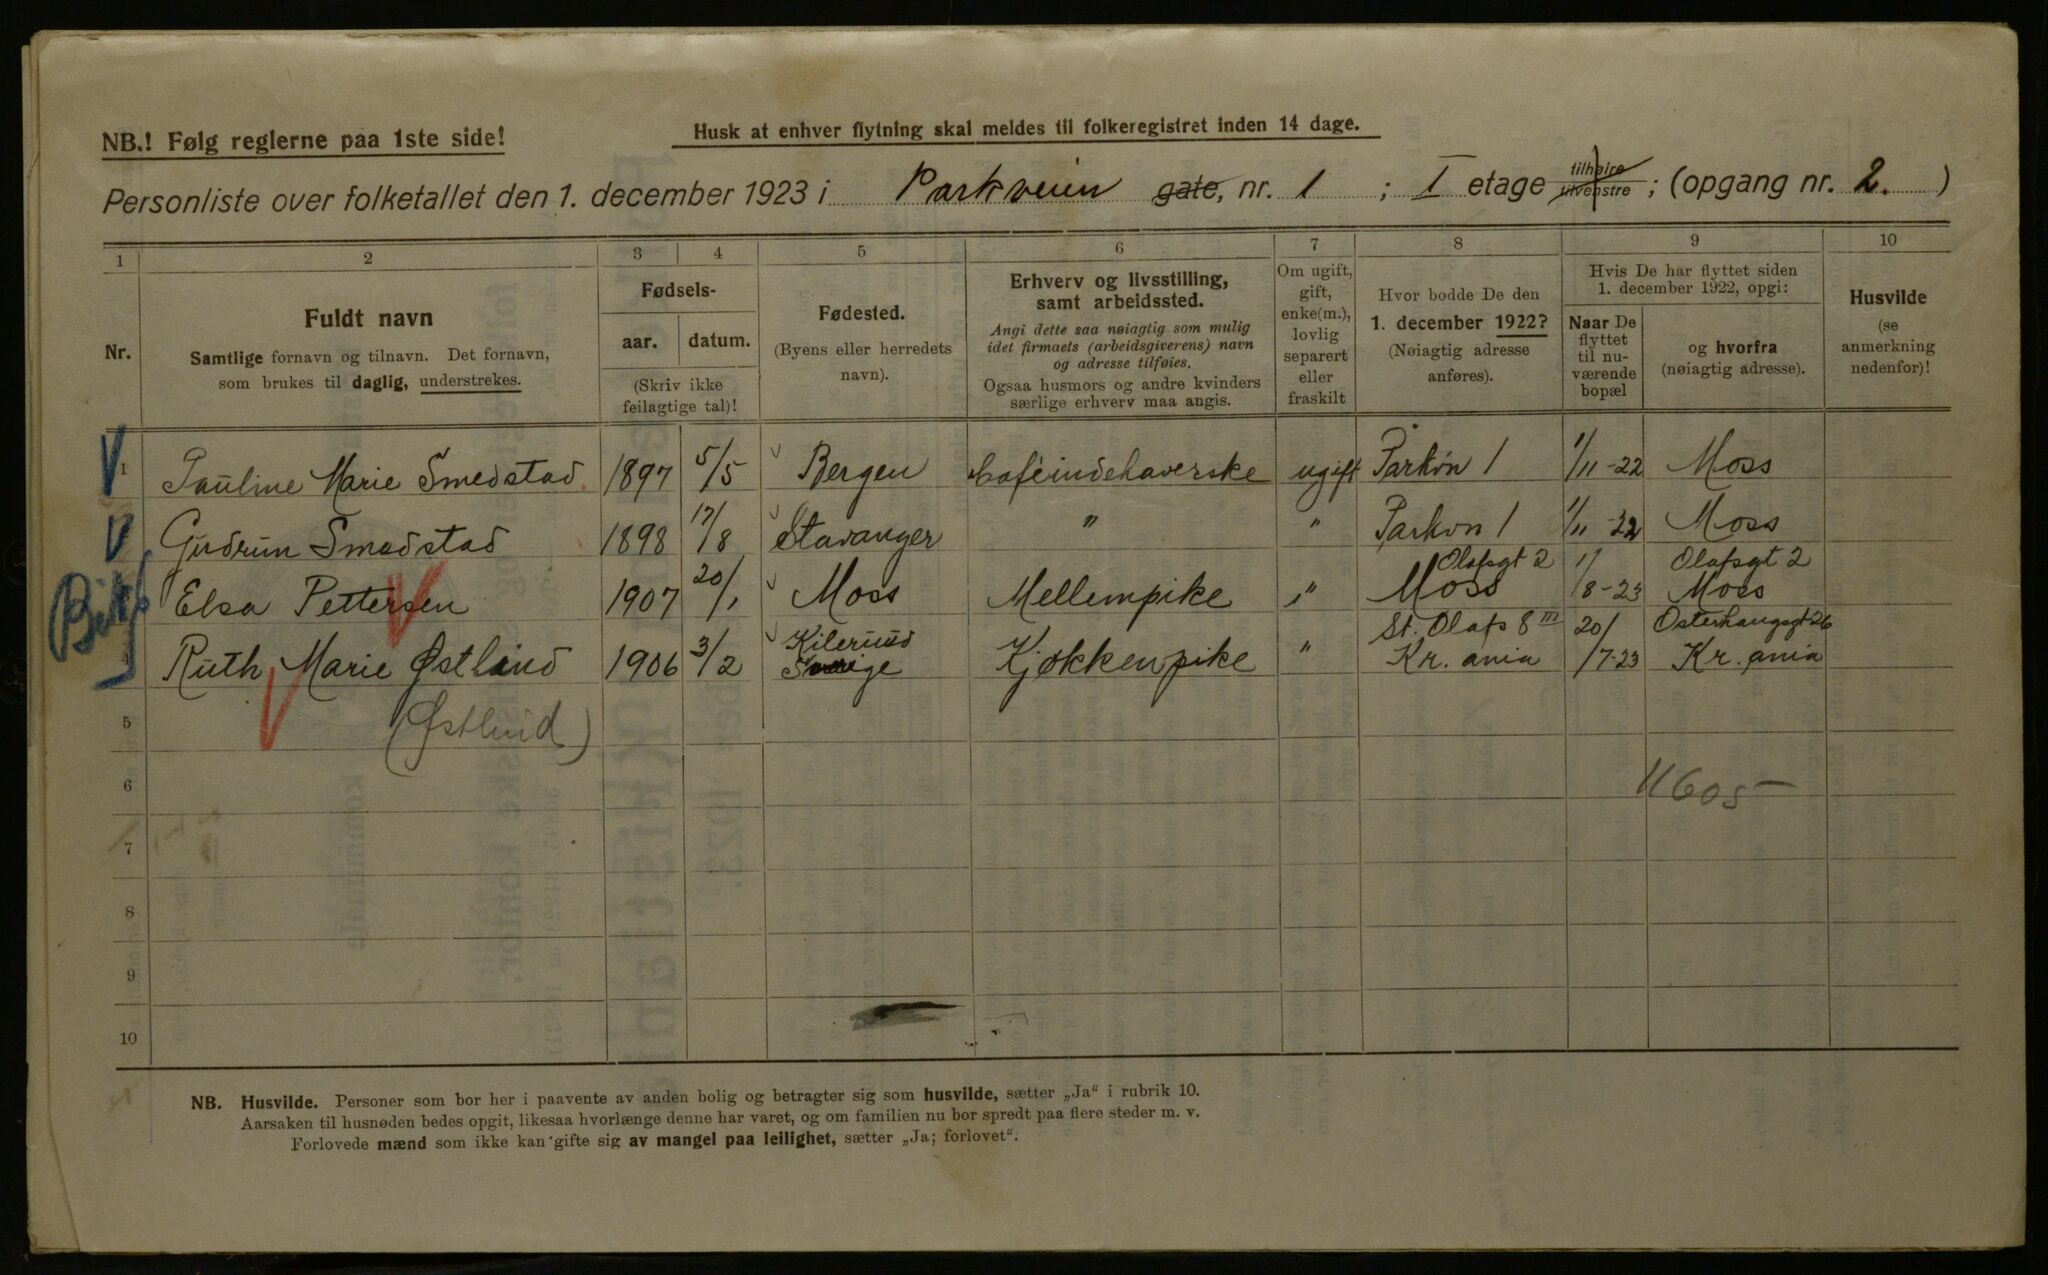 NB.! Følg reglerne paa 1ste side!
Husk at enhver flytning skal meldes til folkeregistret inden 14 dage.
Personliste over folketallet den 1. december 1923 i Parkveien gate, nr. 1 ; I etage tilhøire tilvenstre ; (opgang nr. 2. )
1 2 3 4 5 6 7 8 9 10
Nr.
Fuldt navn
Samtlige fornavn og tilnavn. Det fornavn,
som brukes til daglig, understrekes.
Fødsels-
aar. datum.
(Skriv ikke
feilagtige tal)!
Fødested.
(Byens eller herredets
navn).
Erhverv og livsstilling,
samt arbeidssted.
Angi dette saa nøiagtig som mulig
idet firmaets (arbeidsgiverens) navn
og adresse tilføies.
Ogsaa husmors og andre kvinders
særlige erhverv maa angis.
Om ugift,
gift,
enke(m.),
lovlig
separert
eller
fraskilt
Hvor bodde De den
1. december 1922?
(Nøiagtig adresse
anføres).
Hvis De har flyttet siden
1. december 1922, opgi:
Naar De
flyttet
til nu-
værende
bopæl
og hvorfra
(nøiagtig adresse).
Husvilde
(se
anmerkning
nedenfor)!
1 Pauline Marie Smedstad 1897 5/5 Bergen Caféindehaverske ugift Parkvn 1 1/11-22 Moss
Gudrun Smedstad 1898 17/8 Stavanger " " Parkvn 1 1/11-22 Moss
Elsa Pettersen 1907 20/1 Moss Mellempike " Olafsgt 2 Moss 1/8-23 Olafsgt 2 Moss
4 Ruth Marie Østlund 1906 3/2 Sverige Kjøkkenpike " St. Olafs 8 III Kr. ania 20/7-23 Kr. ania
5 (Østlund)
6 11605-
7
8
9
10
NB. Husvilde. Personer som bor her i paavente av anden bolig og betragter sig som husvilde, sætter „Ja“ i rubrik 10.
Aarsaken til husnøden bedes opgit, likesaa hvorlænge denne har varet, og om familien nu bor spredt paa flere steder m. v.
Forlovede mænd som ikke kan gifte sig av mangel paa leilighet, sætter „Ja; forlovet“.